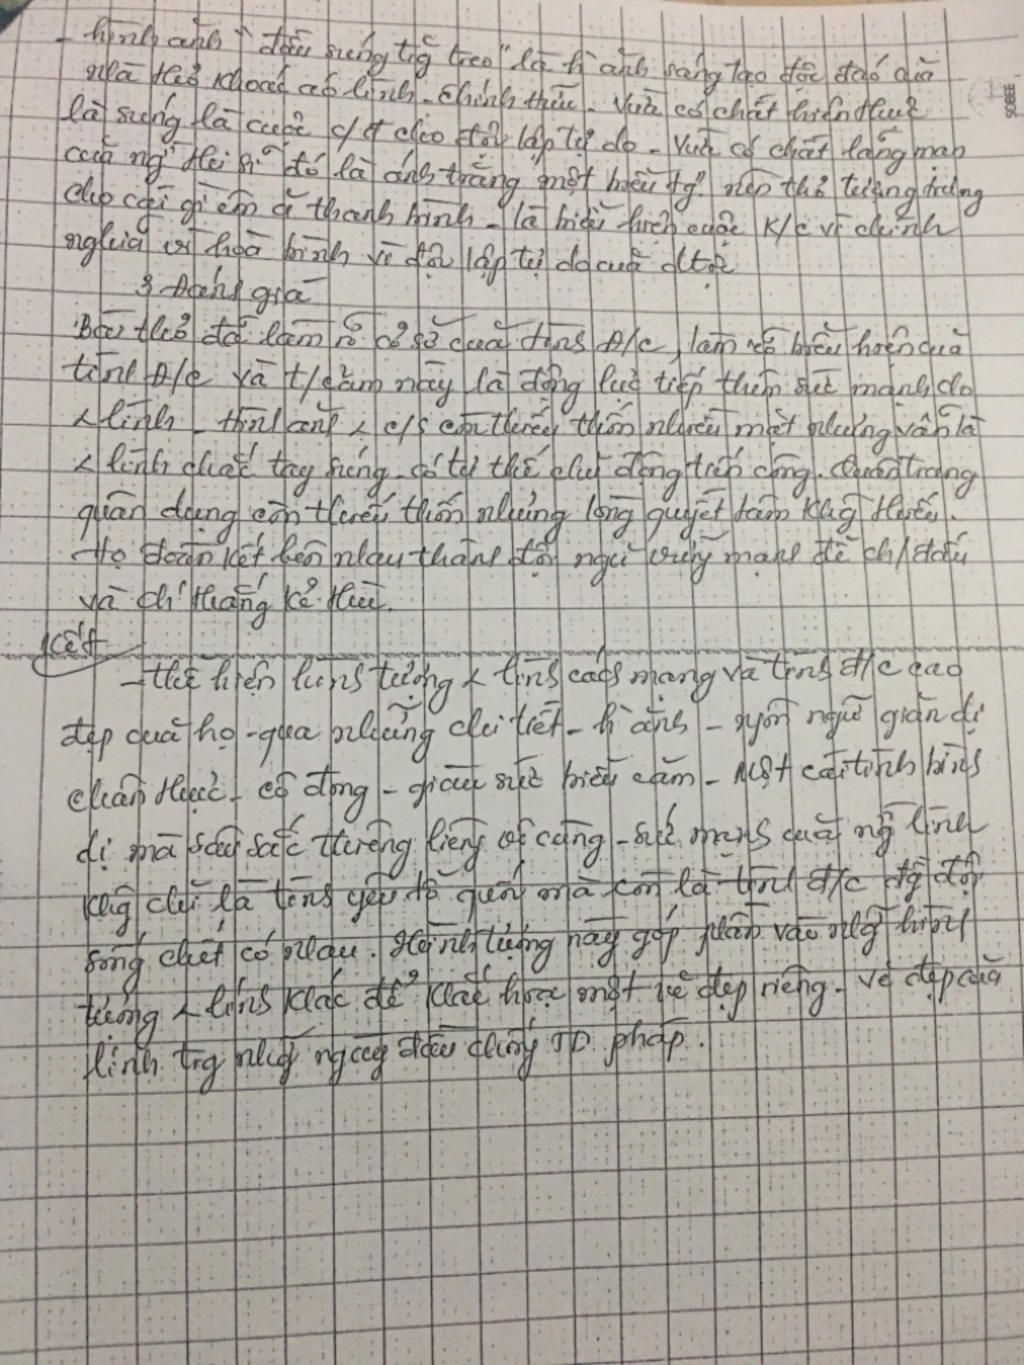 - hình ảnh "đầu súng trg treo" là h ảnh sáng tạo độc đáo của
nhà thơ khoác áo lính - chính Hữu - Vừa có chất hiện thực
là súng là cuộc c/đ cho độc lập tự do - Vừa có chất lãng mạn
của ng' thi sĩ đó là ánh trăng một biểu tg' nên thơ tượng trưng
cho cái gì êm ả thanh bình - là biểu hiện cuộc K/c vì chính
nghĩa vì hoà bình vì độc lập tự do của dtộc
3. Đánh giá
Bài thơ đã làm rõ cơ sở của tình Đ/c, làm rõ biểu hiện của
tình Đ/c và t/cảm này là động lực tiếp thêm sức mạnh cho
lính - hình ảnh c/s còn thiếu thốn nhiều mặt nhưng vẫn là
lính chắc tay súng - có tư thế chủ động tiến công. Quân trang
quân dụng còn thiếu thốn nhưng lòng quyết tâm khg thiếu.
Họ đoàn kết bên nhau thành đội ngũ vững mạnh để ch/đấu
và ch' thắng kẻ thù.
Kết
- thể hiện hình tượng lính cách mạng và tình đ/c cao
đẹp của họ - qua những chi tiết - h ảnh - ngôn ngữ giản dị
chân thực - cô đọng - giàu sức biểu cảm - Một cái tình bình
dị mà sâu sắc thiêng liêng vô cùng - sức mạnh của ng lính
khg chỉ là tình yêu đ quốc mà còn là tình đ/c đg đội
sống chết có nhau. Hình tượng này góp phần vào nhg hình
tượng lính khác để khắc hoạ một vẻ đẹp riêng - vẻ đẹp của
lính trg nhg ngày đầu chống TD pháp.